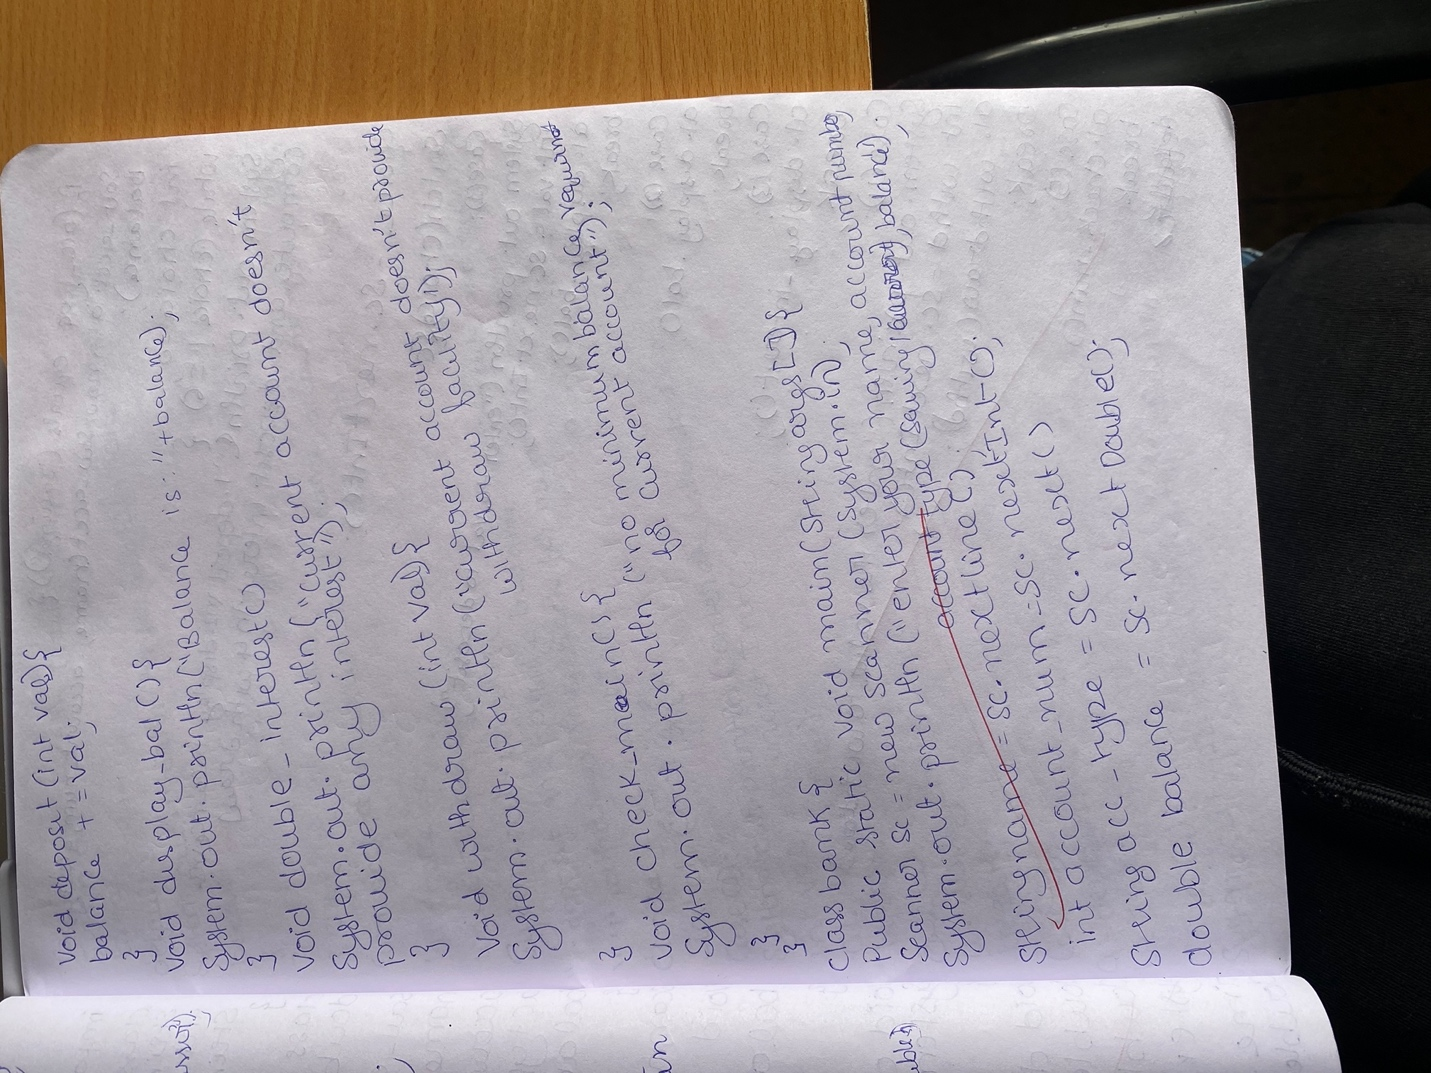 void deposit (int val) {
balance += val;
}
void display_bal () {
System.out.println("Balance is: "+balance);
}
void double_interest()
System.out.println("current account doesn't
provide any interest");
}
void withdraw (int val) {
System.out.println("current account doesn't provide
withdraw facility");
}
void check_main() {
System.out.println ("no minimum balance required
for current account");
}
}
class bank {
public static void main(String args[]) {
Scanner sc = new Scanner (System.in);
System.out.println ("enter your name, account number,
account type (saving/current), balance);
String name = sc.nextLine();
int account_num = sc.nextInt();
String acc_type = sc.next()
double balance = sc.nextDouble();